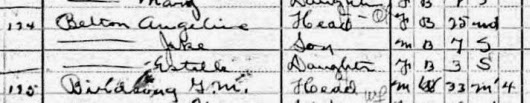 Mary Daughter F B 9 S
134 Belton Angeline Head O F B 25 wd
—— Jake Son M B 7 S
—— Estelle Daughter F B 3 S
135 Birdsong G. M. Head M W 33 M 4